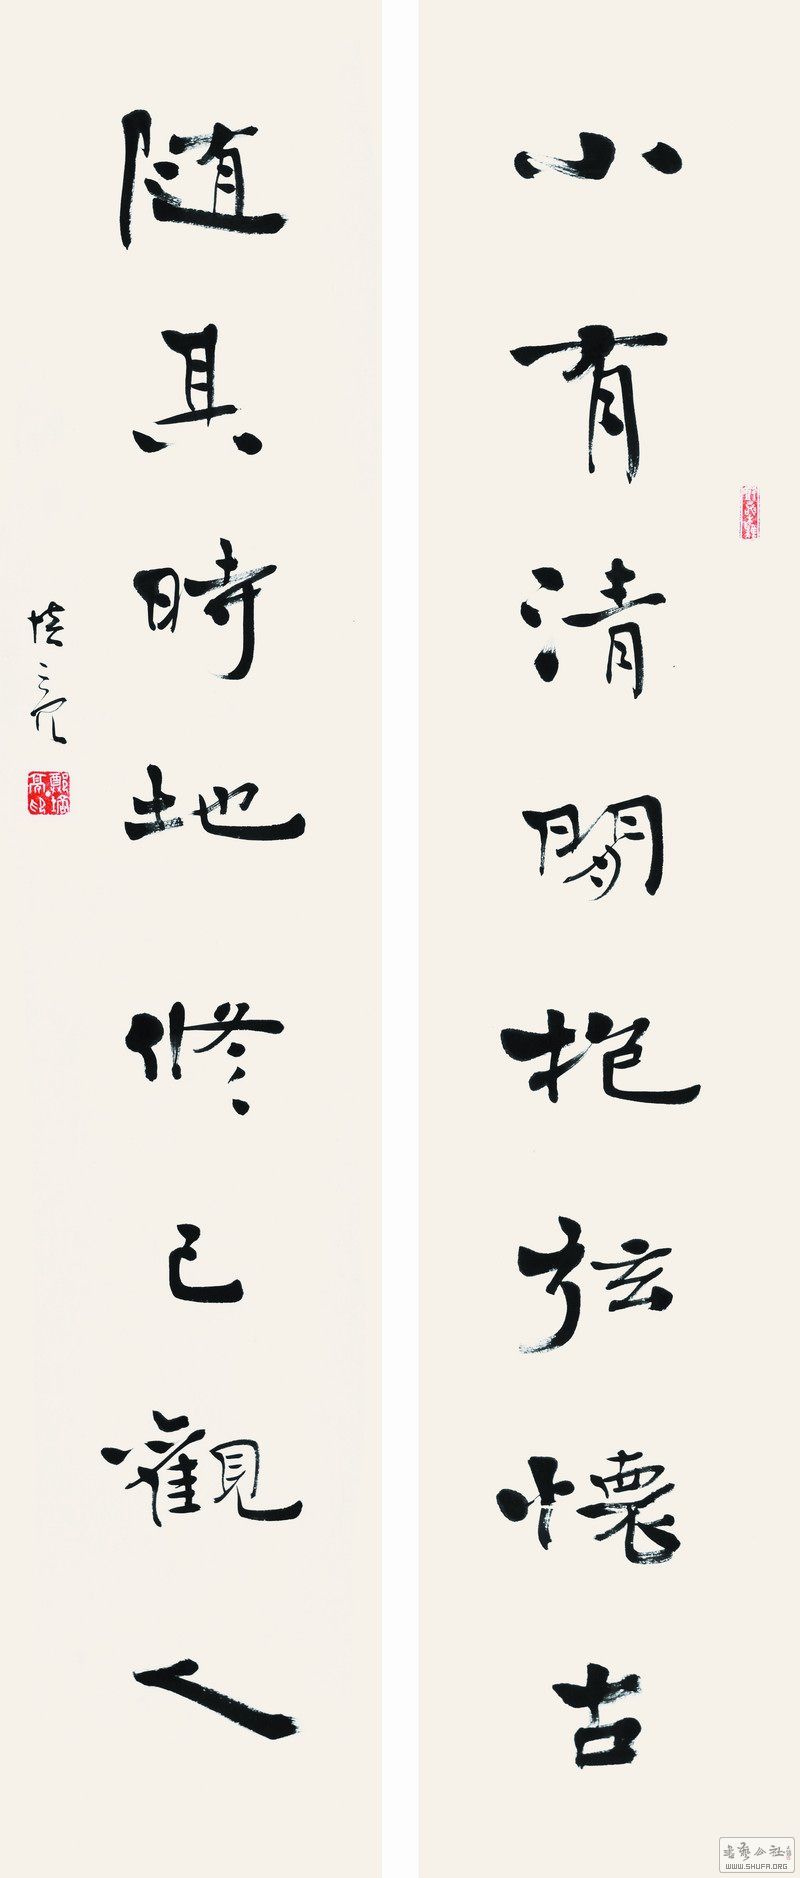 小有清閑抱弦懷古
随其時地修己觀人
WWW.SHUFA.ORG